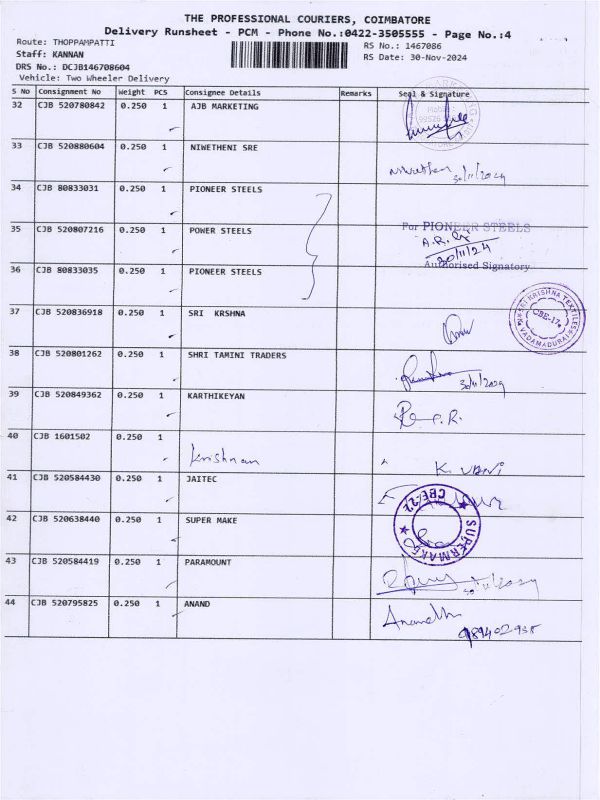 THE PROFESSIONAL COURIERS, COIMBATORE
Delivery Runsheet - PCM - Phone No.:0422-3505555 - Page No.:4
Route: THOPPAMPATTI
RS No.: 1467086
Staff: KANNAN
RS Date: 30-Nov-2024
DRS No.: DCJB146708604
Vehicle: Two Wheeler Delivery
S No Consignment No Weight PCS Consignee Details Remarks Seal & Signature
32 CJB 520780842 0.250 1 AJB MARKETING
33 CJB 520880604 0.250 1 NIWETHENI SRE
Niwetheni 30/11/2024
34 CJB 80833031 0.250 1 PIONEER STEELS
For PIONEER STEELS
35 CJB 520807216 0.250 1 POWER STEELS
30/11/24
Authorised Signatory
36 CJB 80833035 0.250 1 PIONEER STEELS
37 CJB 520836918 0.250 1 SRI KRSHNA
SRI KRISHNA TEXTILES
CBE-17
VADAMADURAI
38 CJB 520801262 0.250 1 SHRI TAMINI TRADERS
30/11/2024
39 CJB 520849362 0.250 1 KARTHIKEYAN
40 CJB 1601502 0.250 1
Krishnan
K. VBNi
41 CJB 520584430 0.250 1 JAITEC
42 CJB 520638440 0.250 1 SUPER MAKE
SUPERMAKE
CBE-22
43 CJB 520584419 0.250 1 PARAMOUNT
30/11/2024
44 CJB 520795825 0.250 1 ANAND
Anandh